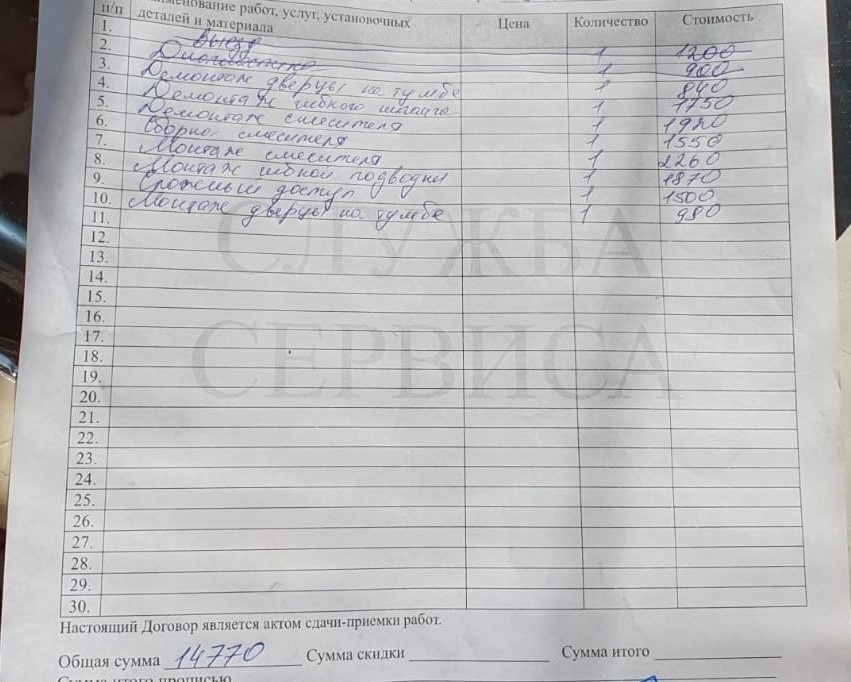 п/п
именование работ, услуг, установочных
деталей и материала
Цена
Количество
Стоимость
1. Выезд 1 1200
2. Диагностика 1 900
3. Демонтаж дверцы на тумбе 1 840
4. Демонтаж гибкого шланга 1 1750
5. Демонтаж смесителя 1 1920
6. Сборка смесителя 1 1550
7. Монтаж смесителя 1 2260
8. Монтаж гибкой подводки 1 1870
9. Сложный доступ 1 1500
10. Монтаж дверцы на тумбе 1 980
11.
12.
13.
14.
15.
16.
17.
18.
19.
20.
21.
22.
23.
24.
25.
26.
27.
28.
29.
30.
СЛУЖБА
СЕРВИСА
Настоящий Договор является актом сдачи-приемки работ.
Общая сумма 14770 Сумма скидки Сумма итого
Сумма итого прописью